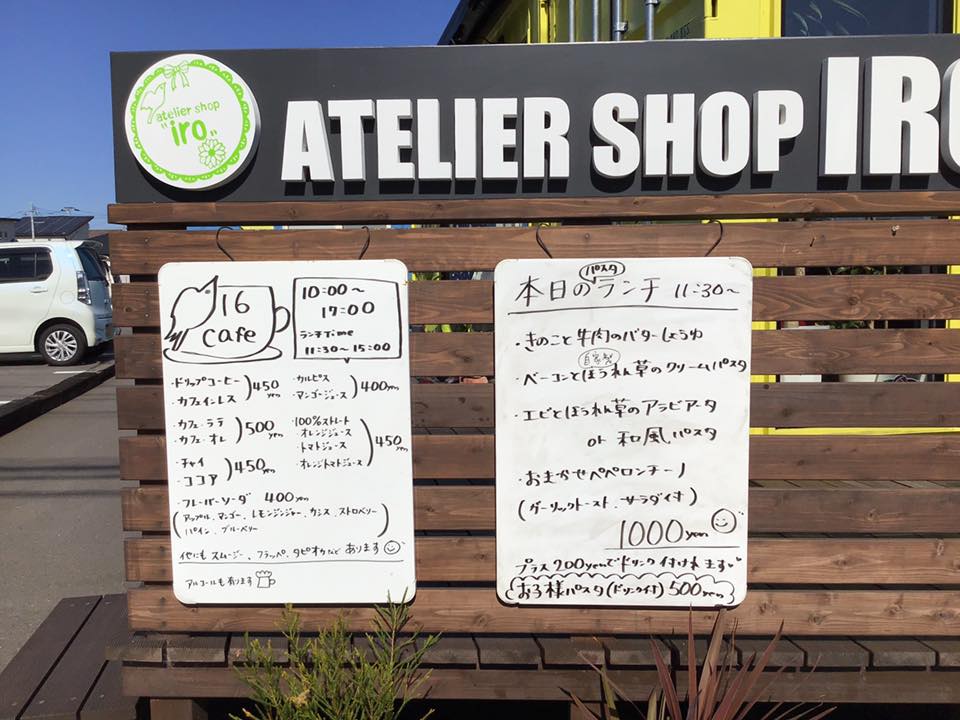 atelier shop
"iro"
ATELIER SHOP IRO
16
cafe
10:00～
17:00
ランチTime
11:30～15:00
・ドリップコーヒー
・カフェインレス
450yen
・カルピス
・マンゴージュース
400yen
・カフェ・ラテ
・カフェ・オレ
500yen
・100%ストレート
・オレンジジュース
・トマトジュース
・オレンジトマトジュース
450yen
・チャイ
・ココア
450yen
・フレーバーソーダ 400yen
(アップル、マンゴー、レモンジンジャー、カシス、ストロベリー
パイン、ブルーベリー)
他にも スムージー、フラッペ、タピオカなど あります
アルコールも有ります
本日のパスタランチ 11:30～
・きのこと牛肉のバターしょうゆ
・自家製ベーコンとほうれん草のクリームパスタ
・エビとほうれん草のアラビアータ
or 和風パスタ
・おまかせペペロンチーノ
(ガーリックトースト、サラダ付)
1000yen
プラス200yenでドリンク付けれます
お子様パスタ(ドリンク付)500yen